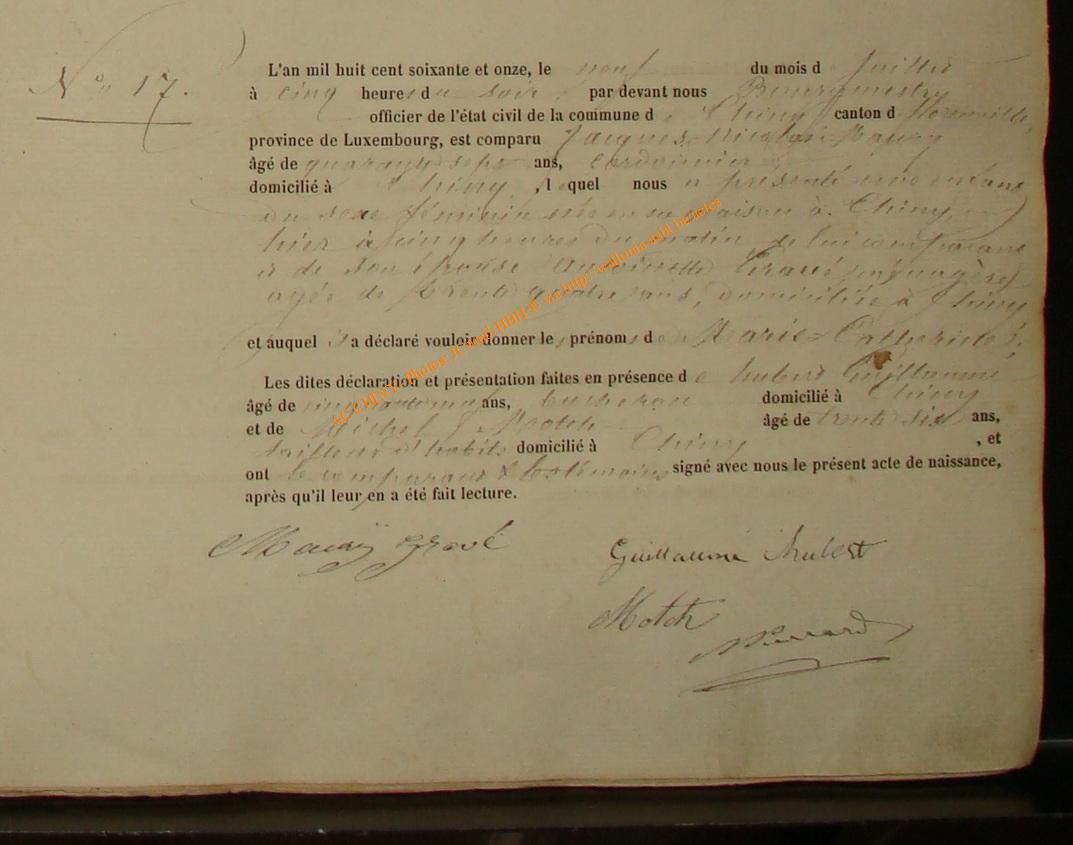 N° 17.
L'an mil huit cent soixante et onze, le neuf du mois d e juillet
à cinq heures du soir, par devant nous Bourgmestre
officier de l'état civil de la commune d e Chiny canton d
province de Luxembourg, est comparu Jacques-Nicolas Maury
âgé de quarante sept ans, cordonnier
domicilié à Chiny, lequel nous a présenté une enfant
du sexe féminin née en sa maison à Chiny
hier à cinq heures du matin, de lui comparant
et de son épouse Antoinette Gravé, ménagère,
agée de trente quatre ans, domiciliée à Chiny
et auquel il a déclaré vouloir donner les prénoms d e Marie-Catherine
Les dites déclaration et présentation faites en présence d e hubert Guillaume
âgé de ans, bucheron domicilié à Chiny
et de Michel Motch âgé de trente six ans,
tailleur d'habits domicilié à Chiny, et
ont le comparant & les témoins signé avec nous le présent acte de naissance,
après qu'il leur en a été fait lecture.
Maury Gravé
Guillaume hubert
Motch
ACCUEIL Photos JClaude HBH & via http://wallonia-asbl.be/actes